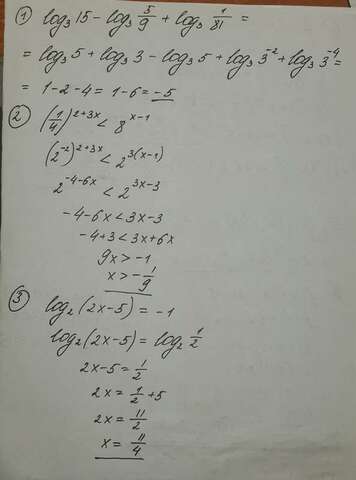 ① log₃15 − log₃ 5/9 + log₃ 1/81 =
= log₃5 + log₃3 − log₃5 + log₃3⁻² + log₃3⁻⁴ =
= 1−2−4 = 1−6 = −5
② (1/4)²⁺³ˣ < 8ˣ⁻¹
(2⁻²)²⁺³ˣ < 2³⁽ˣ⁻¹⁾
2⁻⁴⁻⁶ˣ < 2³ˣ⁻³
−4−6x < 3x−3
−4+3 < 3x+6x
9x > −1
x > −1/9
③ log₂(2x−5) = −1
log₂(2x−5) = log₂ 1/2
2x−5 = 1/2
2x = 1/2 +5
2x = 11/2
x = 11/4